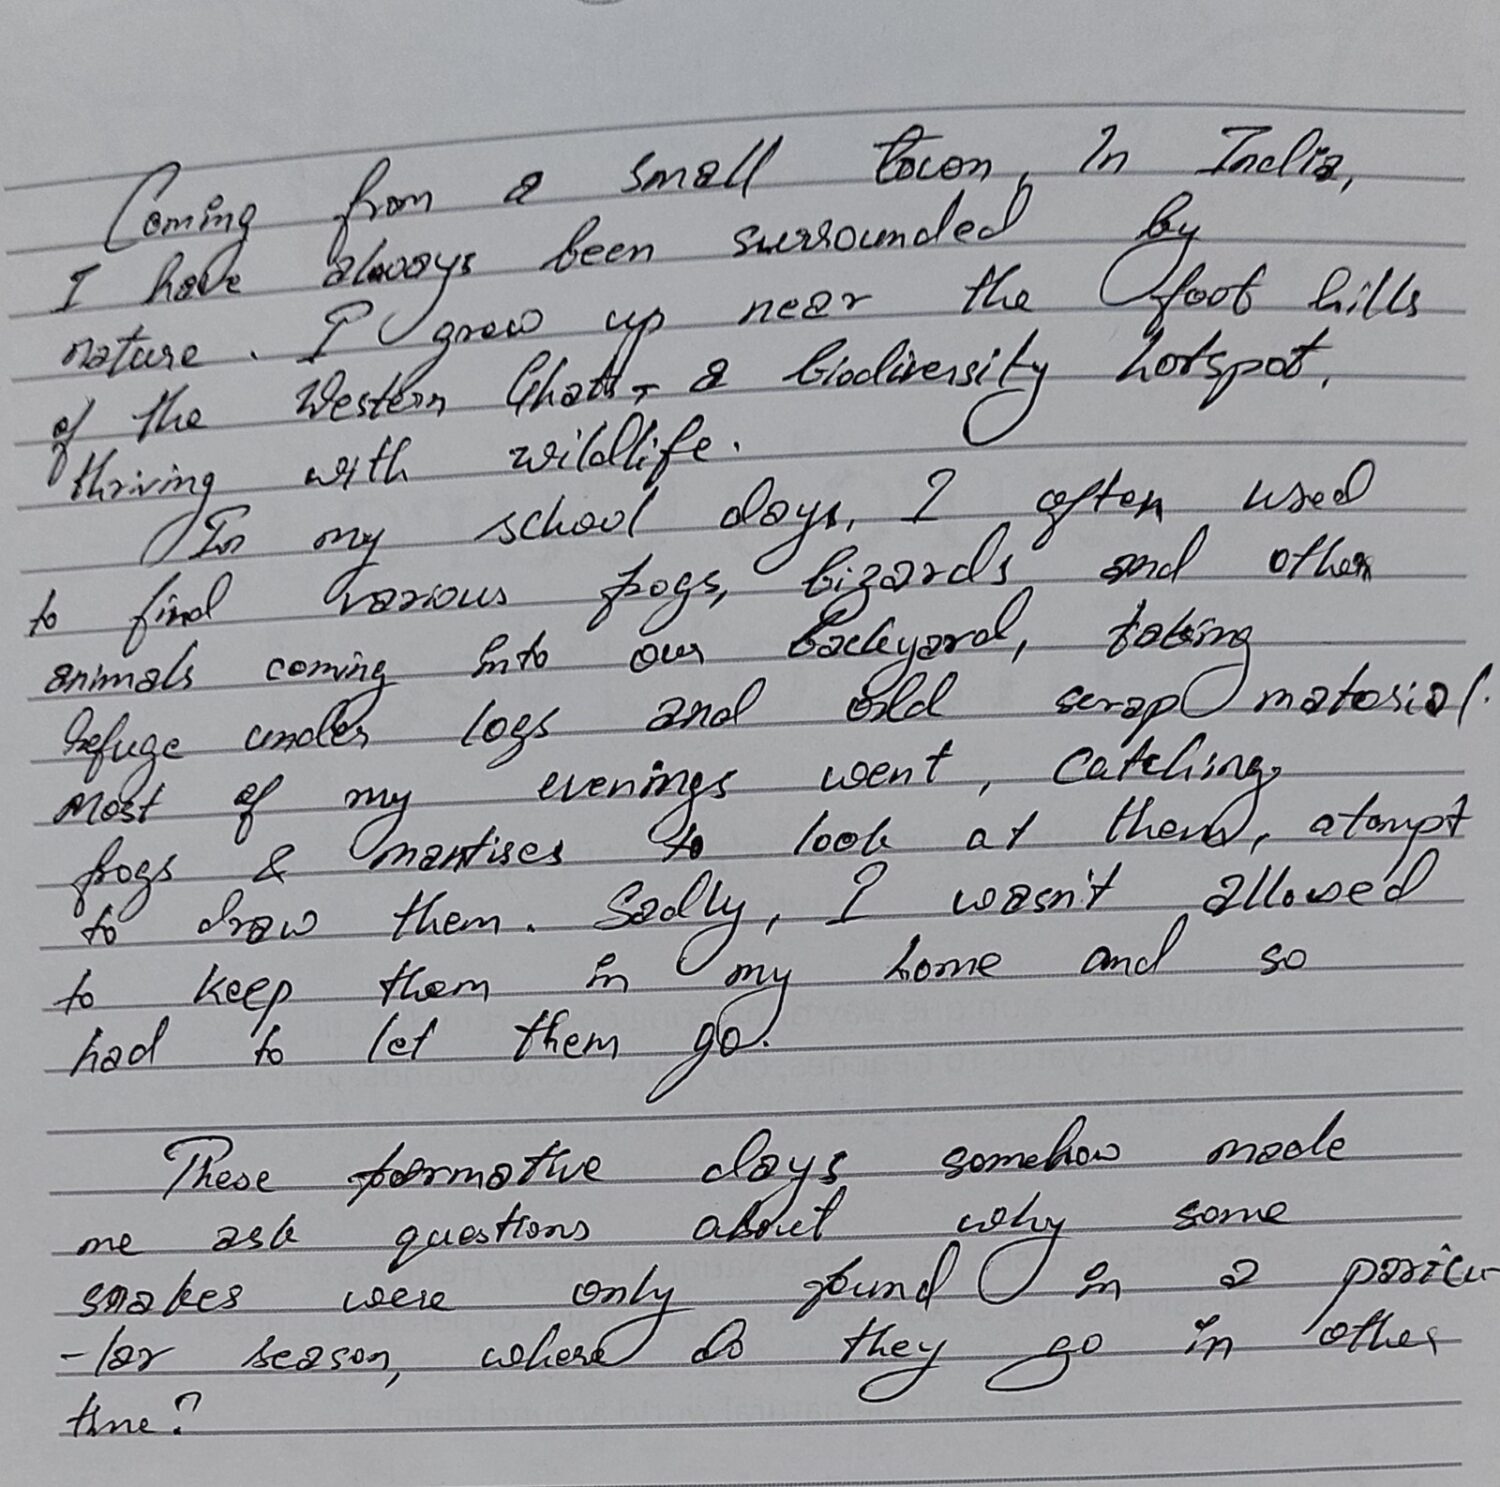 Coming from a small town, In India,
I have always been surrounded by
nature. I grew up near the foot hills
of the Western Ghats, a biodiversity hotspot,
thriving with wildlife.
In my school days, I often used
to find various frogs, lizards and other
animals coming into our backyard, taking
refuge under logs and old scrap material.
Most of my evenings went, catching
frogs & mantises to look at them, atempt
to draw them. Sadly, I wasn't allowed
to keep them in my home and so
had to let them go.
These formative days somehow made
me ask questions about why some
snakes were only found in a particu-
-lar season, where do they go in other
time?